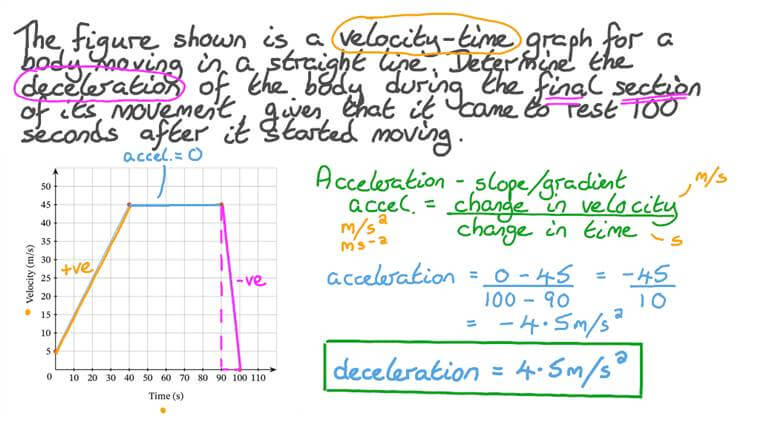 The figure shown is a velocity-time graph for a
body moving in a straight line. Determine the
deceleration of the body during the final section
of its movement, given that it came to rest 100
seconds after it started moving.
accel. = 0
50
45
40
35
30
25
20
15
10
5
0 10 20 30 40 50 60 70 80 90 100 110
Velocity (m/s)
Time (s)
+ve
-ve
Acceleration - slope/gradient
m/s
accel. = change in velocity
change in time
s
m/s²
ms⁻²
acceleration = 0 - 45 = -45
100 - 90 10
= -4.5m/s²
deceleration = 4.5m/s²